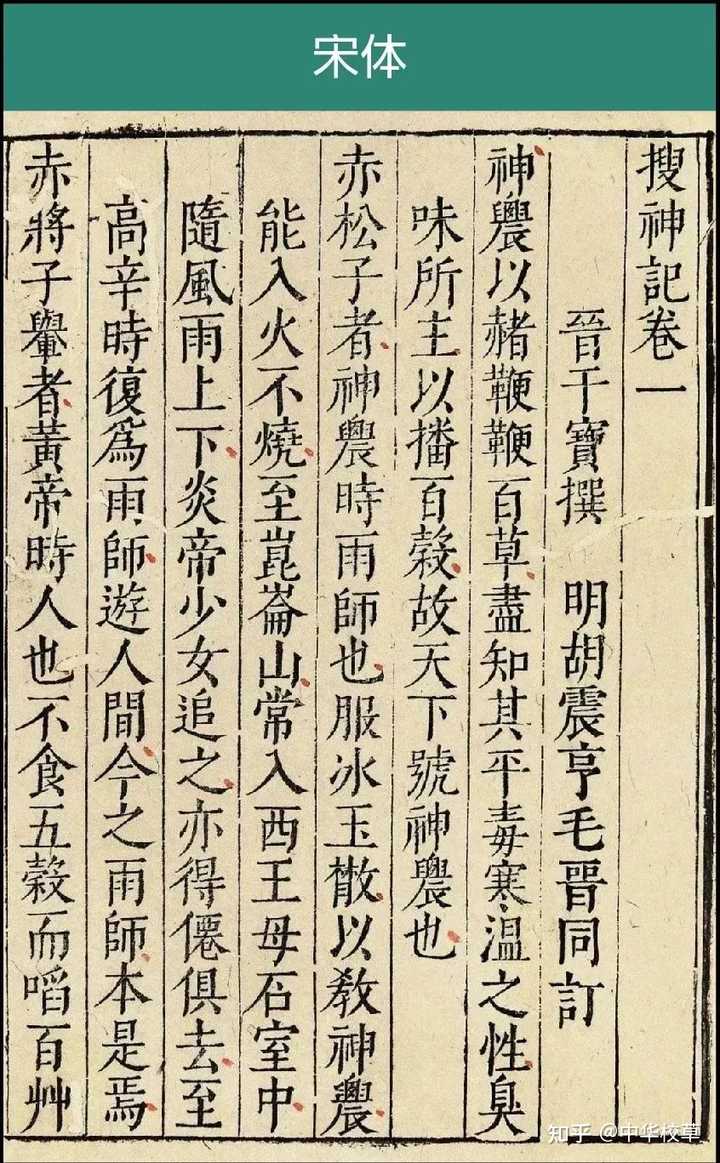 宋体
搜神記卷一
晉干寶撰 明胡震亨毛晉同訂
神農以赭鞭鞭百草盡知其平毒寒溫之性臭
味所主以播百穀故天下號神農也
赤松子者神農時雨師也服冰玉散以教神農
能入火不燒至崑崙山常入西王母石室中
隨風雨上下炎帝少女追之亦得僊俱去至
高辛時復爲雨師遊人間今之雨師本是焉
赤將子轝者黃帝時人也不食五穀而啗百艸
知乎 @中华校草